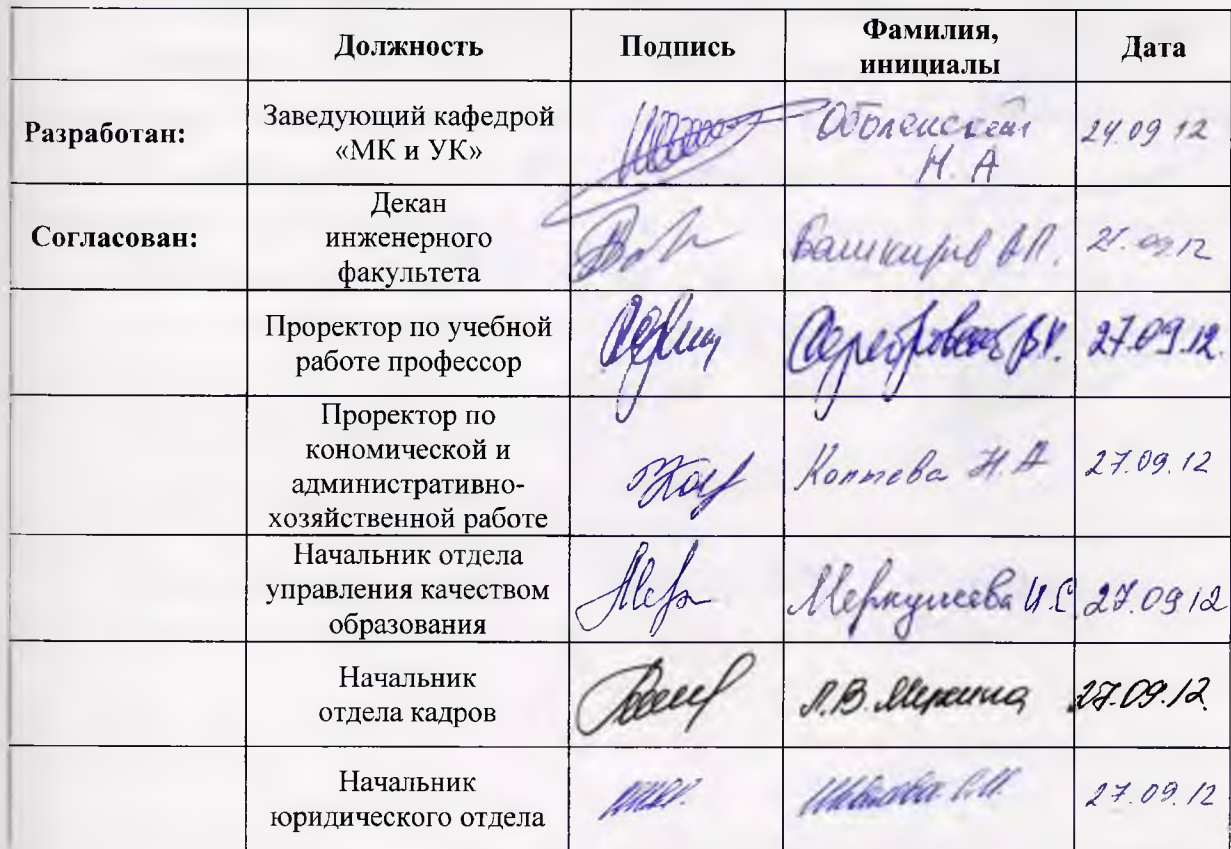 Должность Подпись Фамилия, инициалы Дата
Разработан: Заведующий кафедрой «МК и УК» Оболенский Н. А 24 09 12
Согласован: Декан инженерного факультета Башкирев В.П. 27.09.12
Проректор по учебной работе профессор Серебровский В.И. 27.09.12.
Проректор по кономической и административно- хозяйственной работе Коптева Н.А 27.09.12
Начальник отдела управления качеством образования Меркушева И.С 27.09 12
Начальник отдела кадров Л.В. 27.09.12.
Начальник юридического отдела 27.09.12